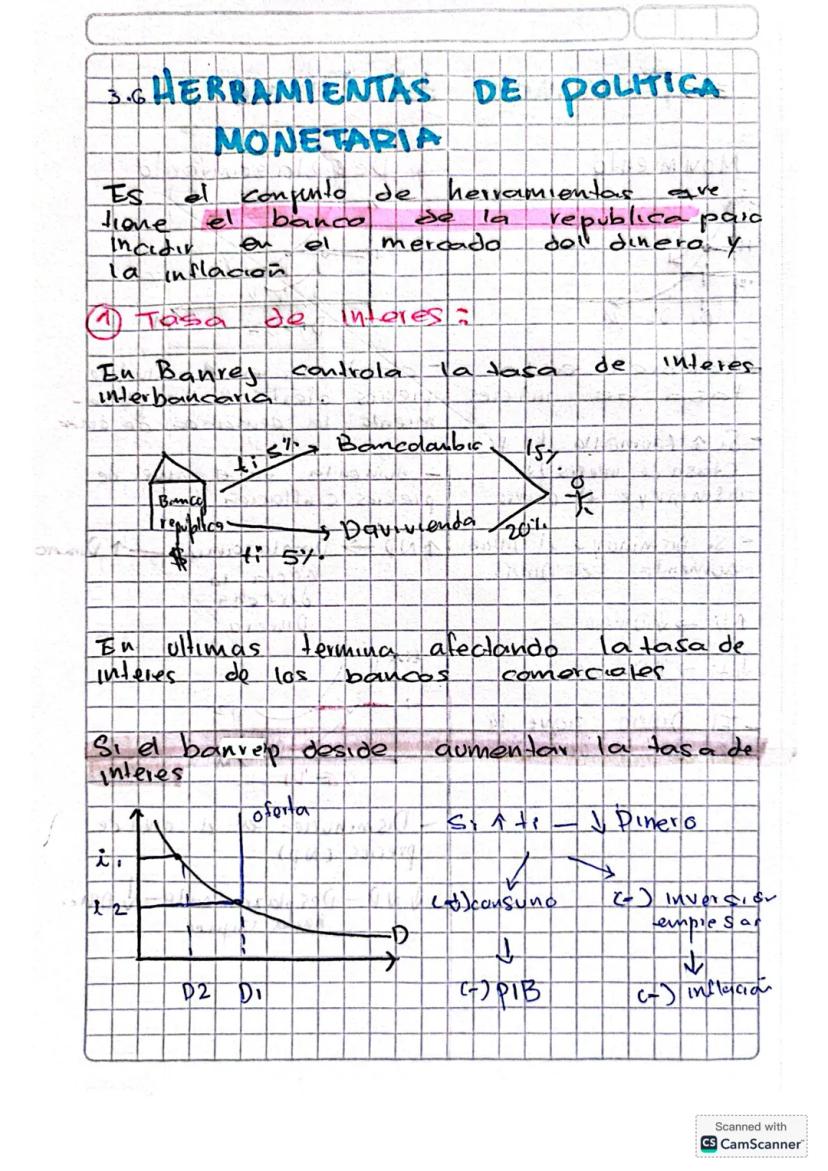 3.6 HERRAMIENTAS DE POLITICA
MONETARIA
Es el conjunto de herramientas que
tiene el banco de la republica para
incidir en el mercado del dinero y
la inflación
① Tasa de interes:
En Banrep controla la tasa de interes
interbancaria.
ti 5% Bancolombia 15%
Banco
republica
$
ti 5% Davivienda 20%
En ultimas termina afectando la tasa de
interes de los bancos comerciales
Si el banrep deside aumentar la tasa de
interes
oferta
i1
i2
D
D2 D1
Si ↑ ti — ↓ Dinero
consumo (-) inversión
empresar
↓ ↓
(-) PIB (-) inflación
Scanned with
CS CamScanner